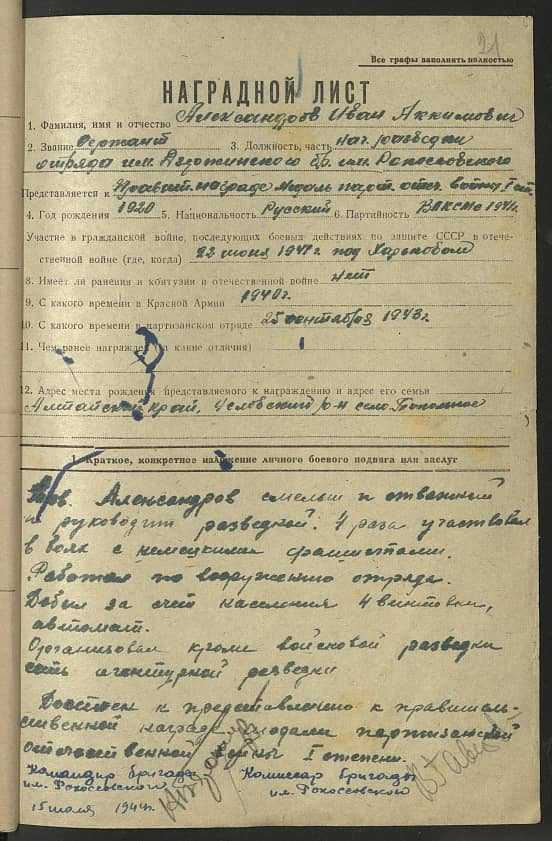 21
Все графы заполнять полностью
НАГРАДНОЙ ЛИСТ
1. Фамилия, имя и отчество Александров Иван Аккимович
2. Звание Сержант 3. Должность, часть нач. разведки
отряда им. Дзержинского бр. им. Рокосовского
Представляется к Правит. награде медаль парт. отеч. войны I ст.
4. Год рождения 1920 5. Национальность Русский 6. Партийность 1941г.
Участие в гражданской войне, последующих боевых действиях по защите СССР в отече-
ственной войне (где, когда) 22 июня 1941 г. под Харьковом
8. Имеет ли ранения и контузии в отечественной войне нет
9. С какого времени в Красной Армии 1940 г.
10. С какого времени в партизанском отряде 25 сентября 1943г.
11. Чем ранее награжден (за какие отличия)
12. Адрес места рождения представляемого к награждению и адрес его семьи
Алтайский край, р-н село
1. Краткое, конкретное изложение личного боевого подвига или заслуг
Тов. Александров смелый и отважный
руководит разведкой. 4 раза участвовал
в боях с немецкими фашистами.
Работал по вооружению отряда.
Добыл за счет населения 4 винтовки,
автомат.
Организовал кроме войсковой разведки
сеть агентурной разведки
Достоен к представлению к правитель-
ственной награде медали партизанской
Отечественной войны I степени.
Командир бригады Комиссар бригады
им. Рокосовского им. Рокосовского
15 июля 1944г.